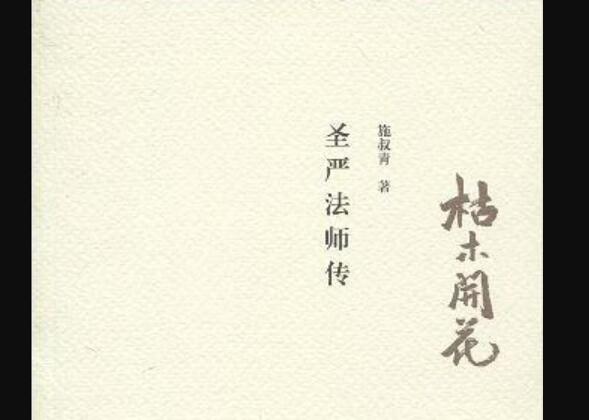 枯木開花
施叔青 著
圣严法师传